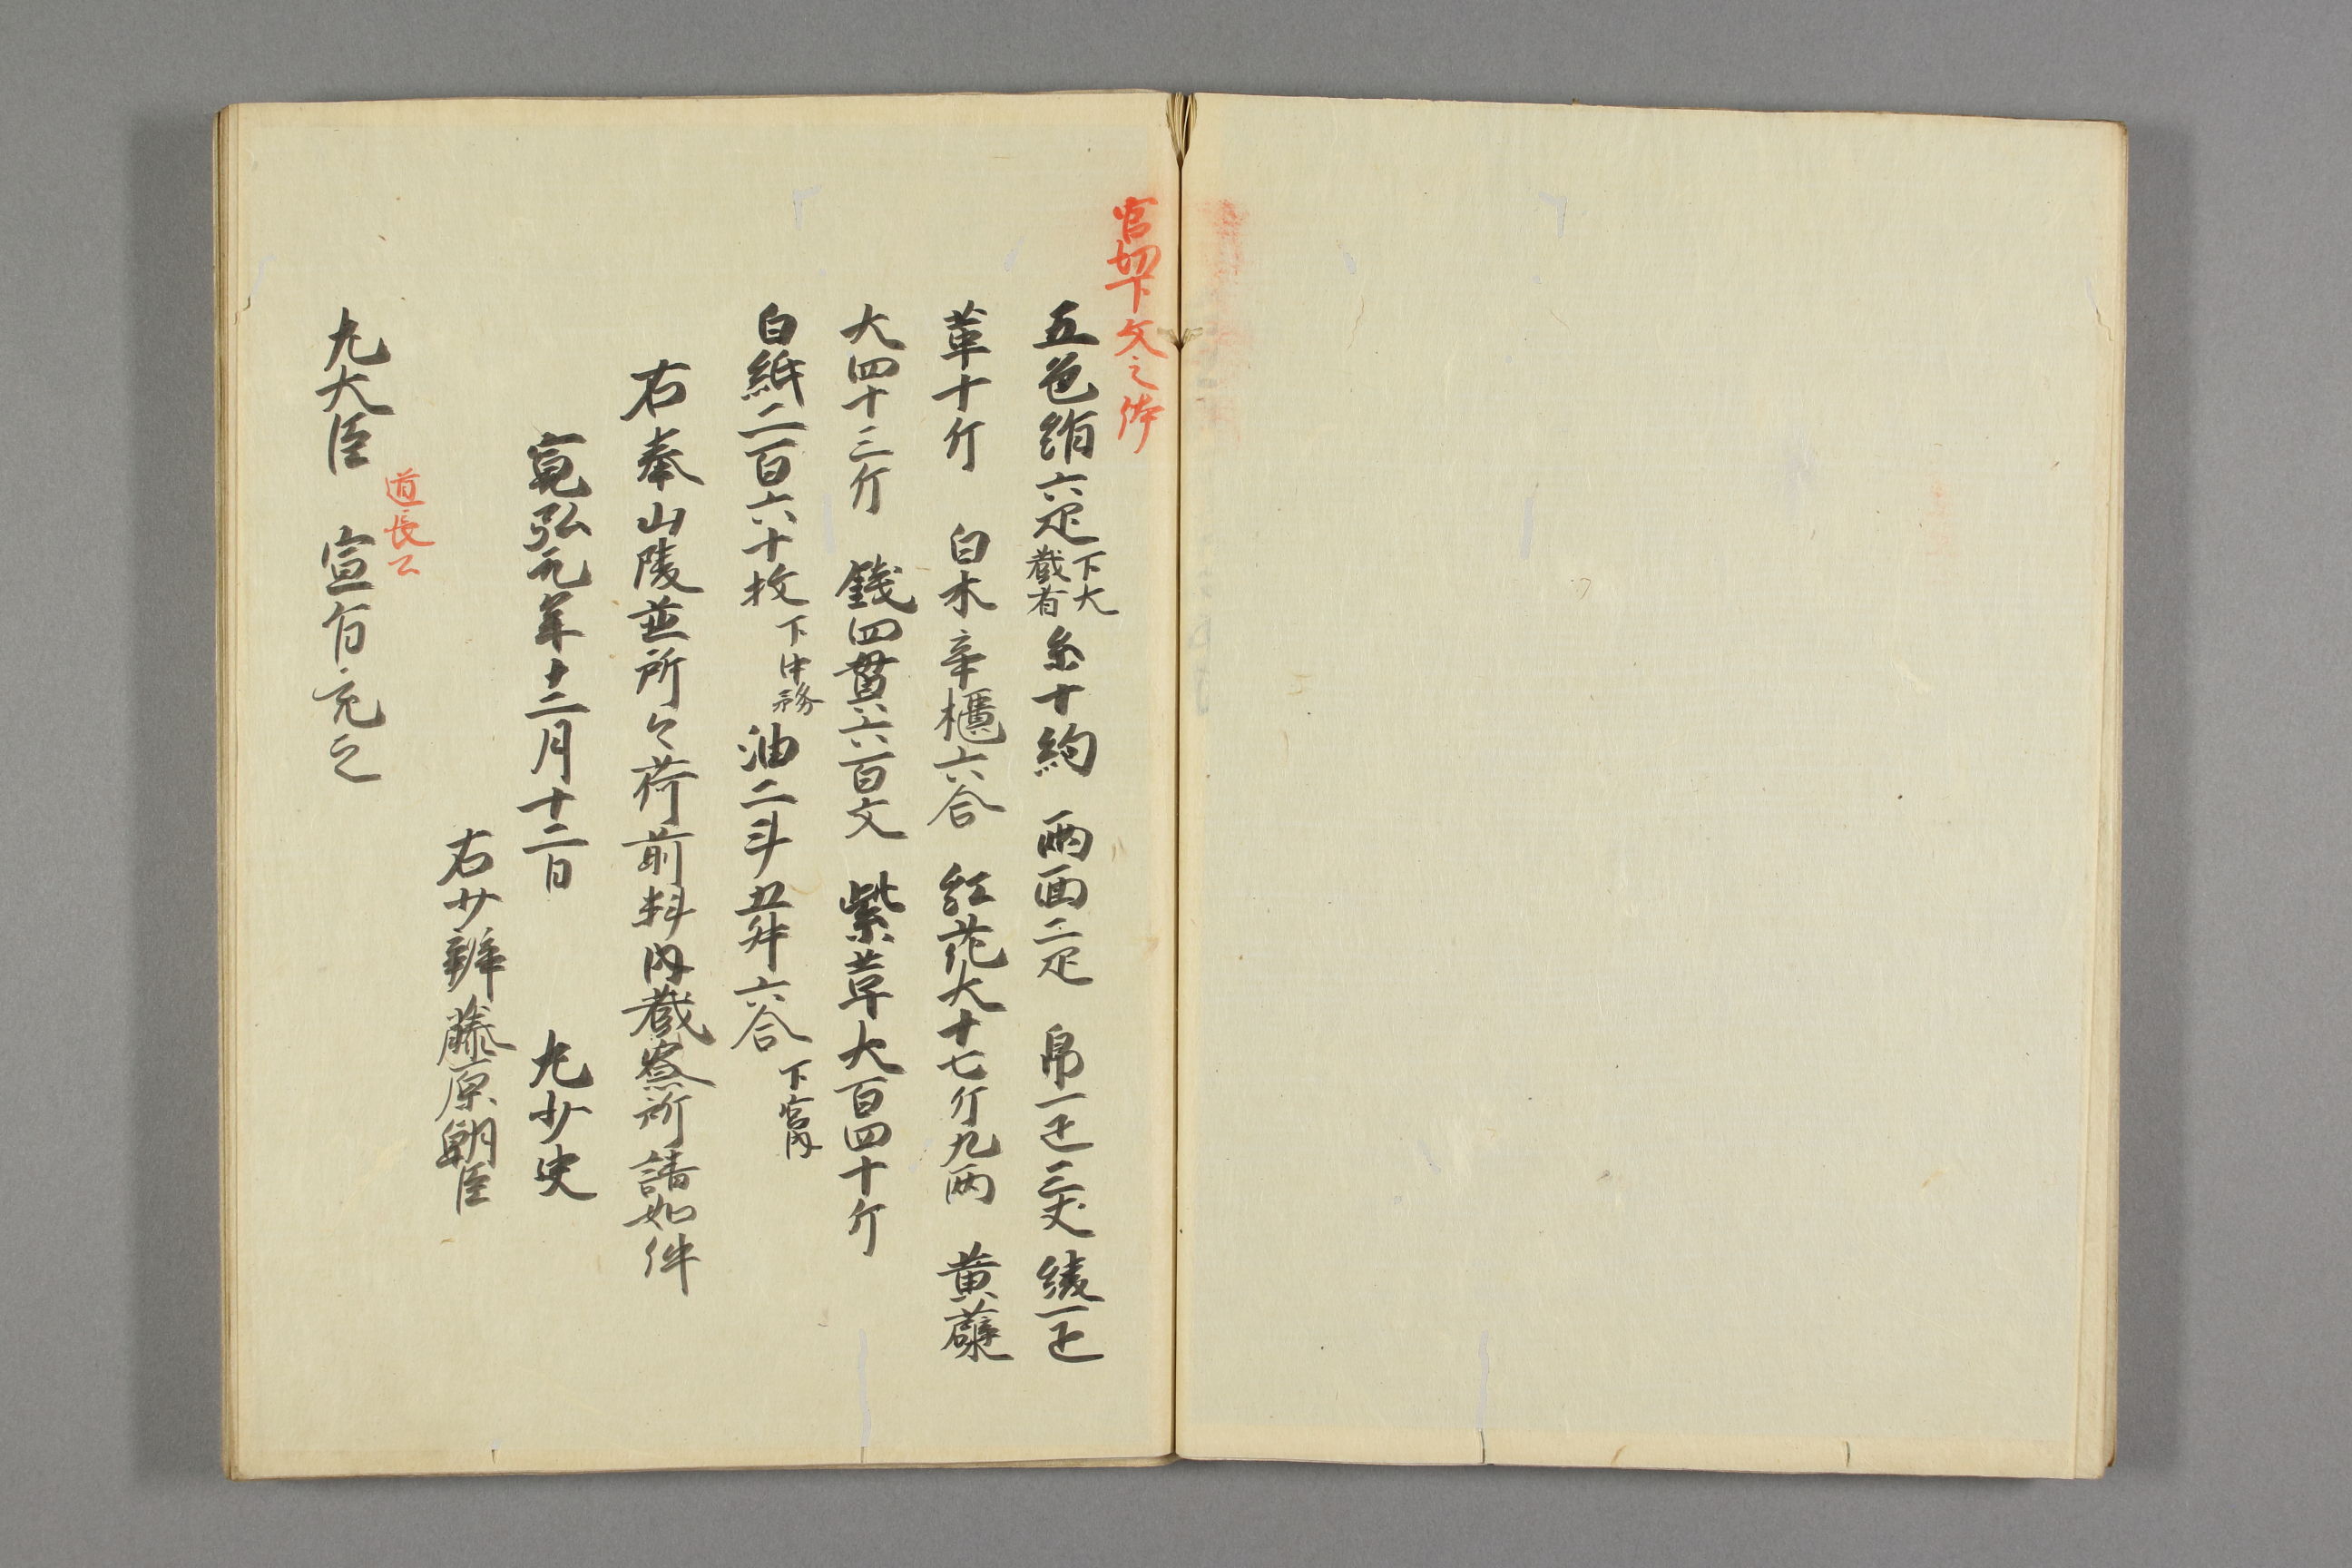 官切下文之体
五色絹六疋下大蔵省糸十絇　両面二疋　帛一疋三丈　綾一疋
革十斤　白木辛櫃六合　紅花大十七斤九両　黄蘗
大四十三斤　銭四貫六百文　紫草大百四十斤
白紙二百六十枚下中務油二斗五升六合下宮内
右奉山陵並所々荷前料内蔵寮所請如件
寛弘元年十二月十二日　左少史
右少辨藤原朝臣
道長公
左大臣　宣旨充之